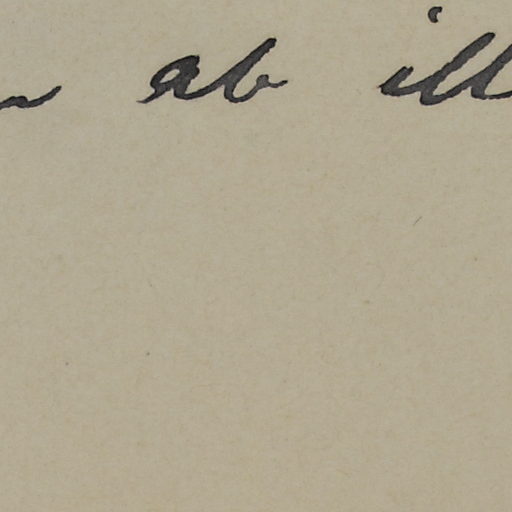 ab ill